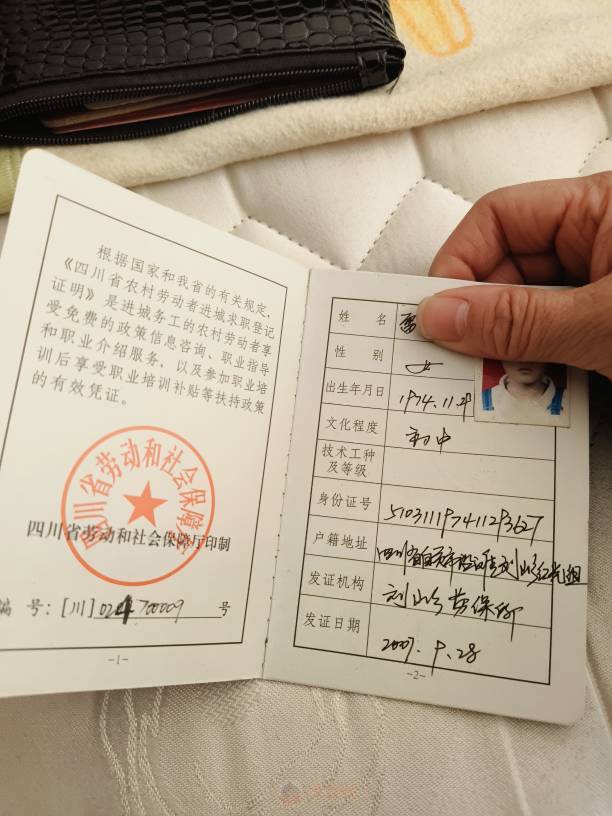 根据国家和我省的有关规定，
《四川省农村劳动者进城求职登记
证明》是进城务工的农村劳动者享
受免费的政策信息咨询、职业指导
和职业介绍服务，以及参加职业培
训后享受职业培训补贴等扶持政策
的有效凭证。
四川省劳动和社会保障厅
四川省劳动和社会保障厅印制
编 号：[川] 0244700009 号
-1-
姓 名
性 别 女
出生年月日 1974.11.29
文化程度 初中
技术工种
及等级
身份证号 510311197411293627
户籍地址 四川省自贡市沿滩区刘山乡红光组
发证机构 刘山乡劳保所
发证日期 2007.9.28
-2-